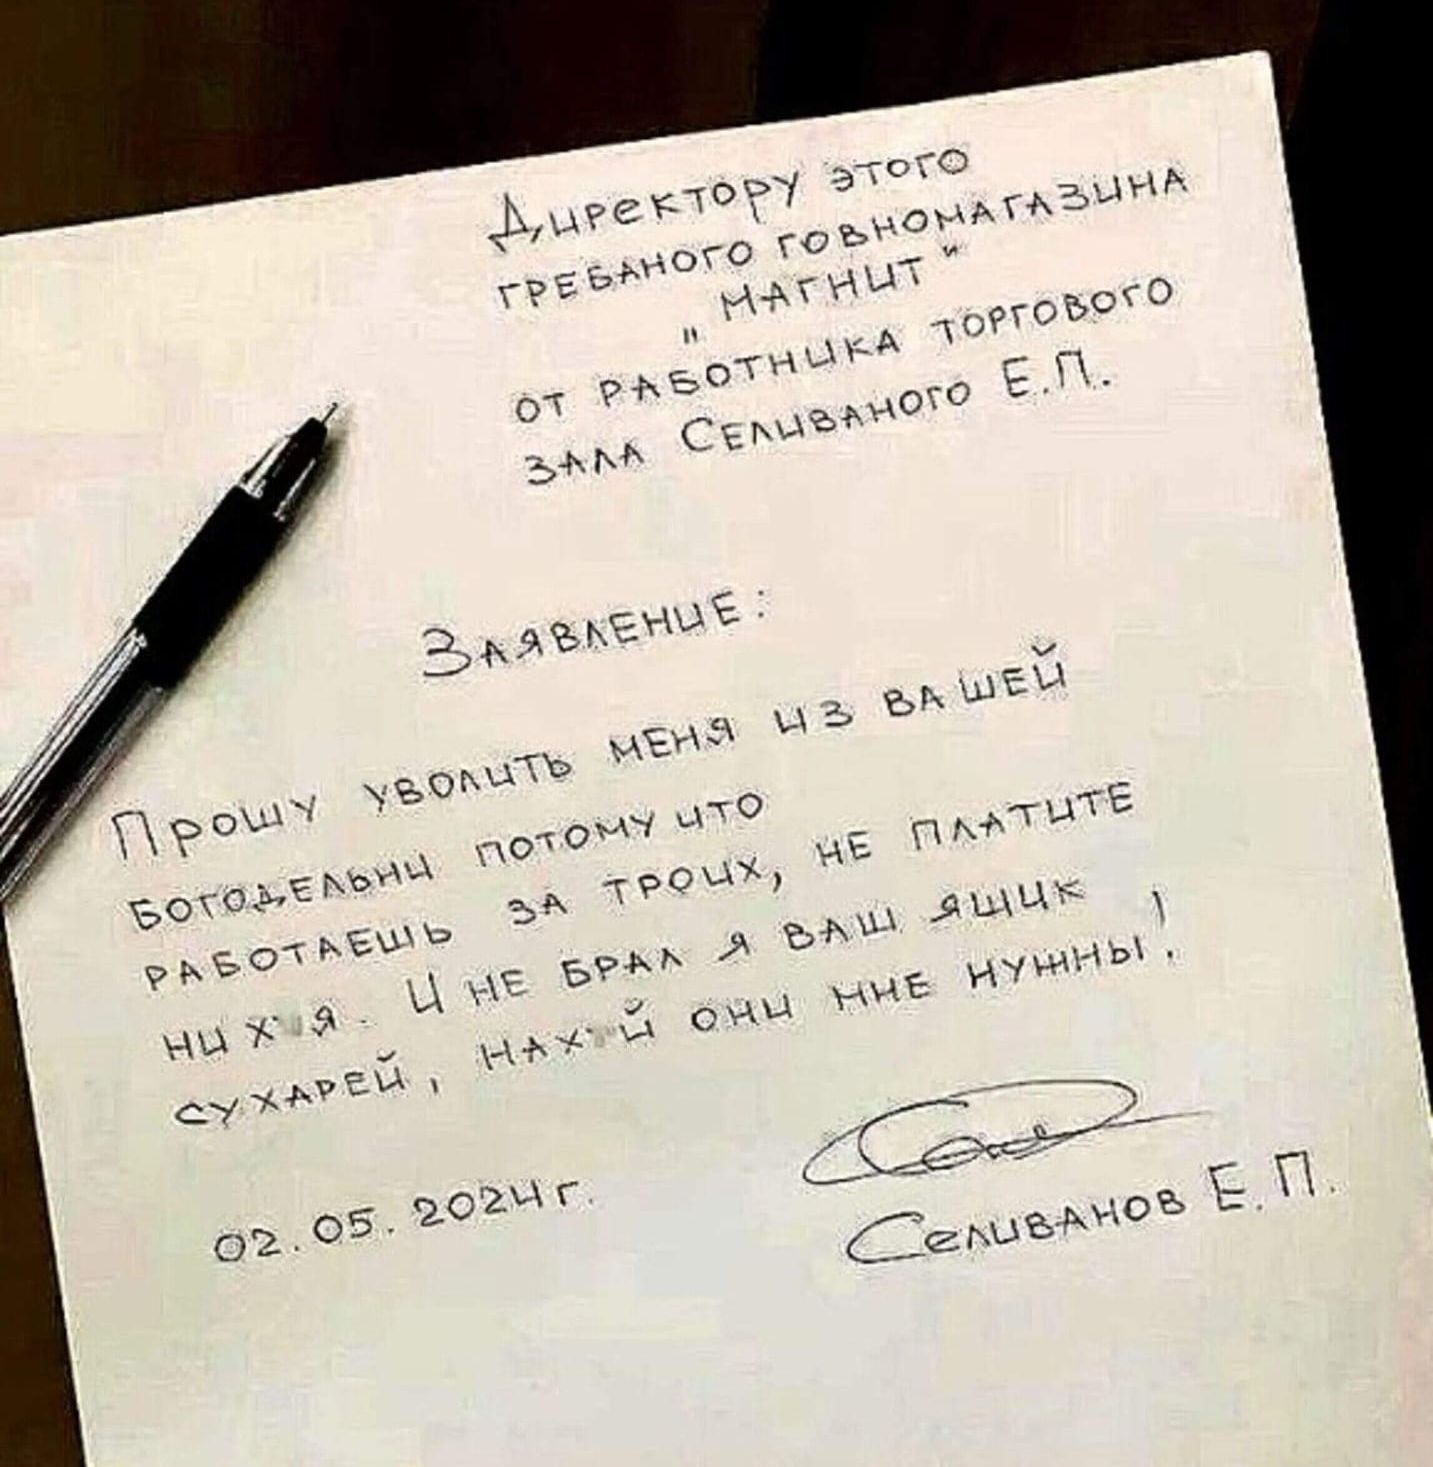 Директору этого
гребаного говномагазина
„Магнит"
от работника торгового
зала Селиваного Е.П.
Заявление:
Прошу уволить меня из вашей
богодельни потому что
работаешь за троих, не платите
ни х я. И не брал я ваш ящик
сухарей, нах й они мне нужны!
02.05.2024г.
Селиванов Е.П.